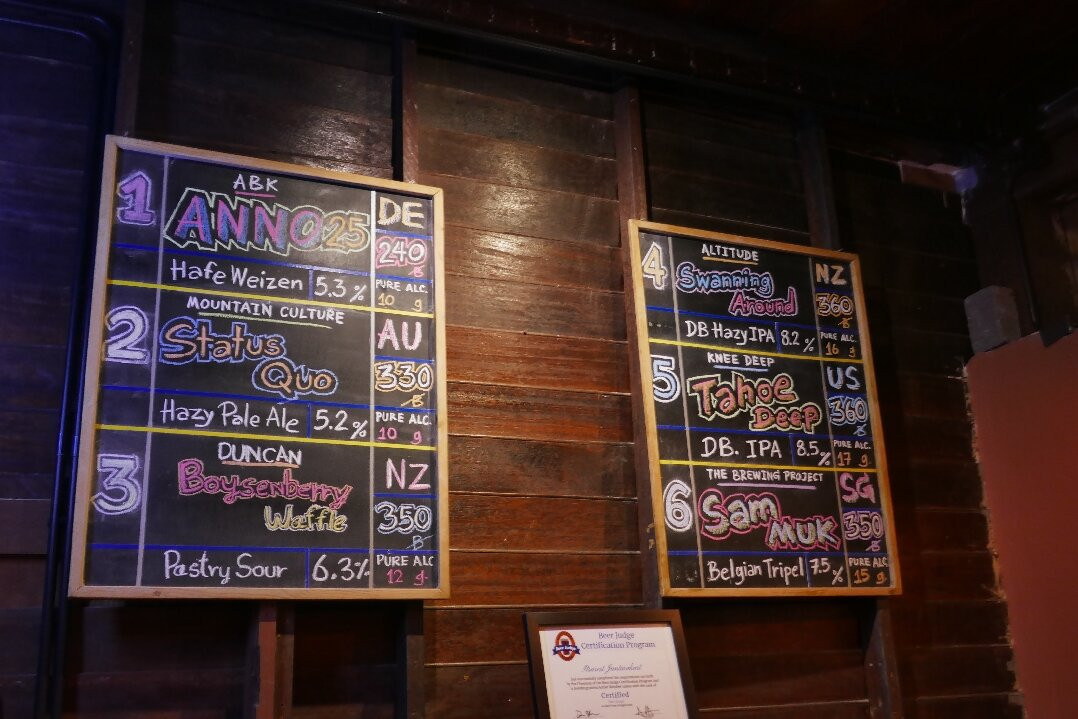 1
ABK
ANNO25
DE
240 ฿
Hafe Weizen 5.3%
PURE ALC
10 g
2
MOUNTAIN CULTURE
Status
Quo
AU
330 ฿
Hazy Pale Ale 5.2%
PURE ALC.
10 g
3
DUNCAN
Boysenberry
Waffle
NZ
350
฿
Pastry Sour 6.3%
PURE ALC
12 g
4
ALTITUDE
Swanning
Around
NZ
360
฿
DB Hazy IPA 8.2%
PURE ALC.
16 g
5
KNEE DEEP
Tahoe
Deep
US
360
฿
DB. IPA 8.5%
PURE ALC.
17 g
6
THE BREWING PROJECT
Sam
MUK
SG
350
฿
Belgian Tripel 7.5%
PURE ALC
15 g
Beer Judge
Certification Program
Certified